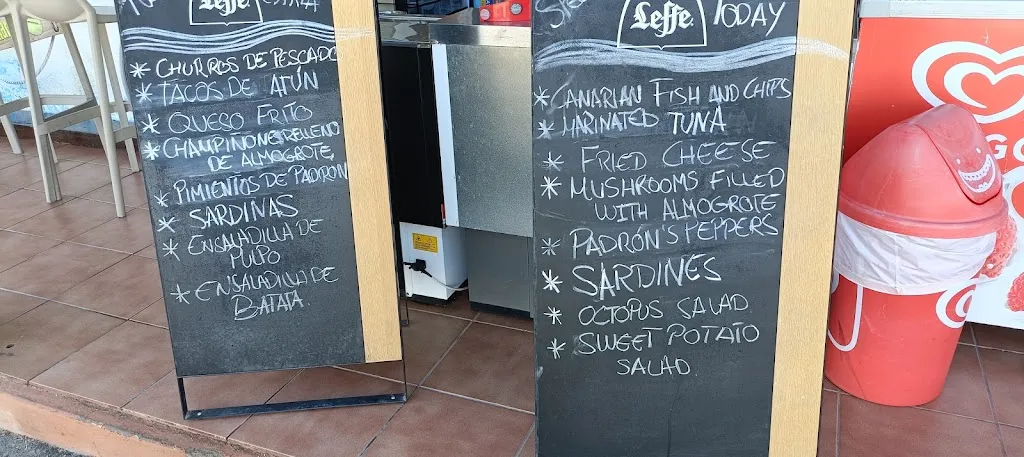 Leffe
* CHURROS DE PESCADO
* TACOS DE ATÚN
* QUESO FRITO
* CHAMPIÑONE RELLENO
DE ALMOGROTE
* PIMIENTOS DE PADRON
* SARDINAS
* ENSALADILLA DE
PULPO
* ENSALADILLA DE
BATATA.
Leffe TODAY
* CANARIAN FISH AND CHIPS
* MARINATED TUNA
* FRIED CHEESE
* MUSHROOMS FILLED
WITH ALMOGROTE
* PADRÓN'S PEPPERS
* SARDINES
* OCTOPUS SALAD
* SWEET POTATO
SALAD.